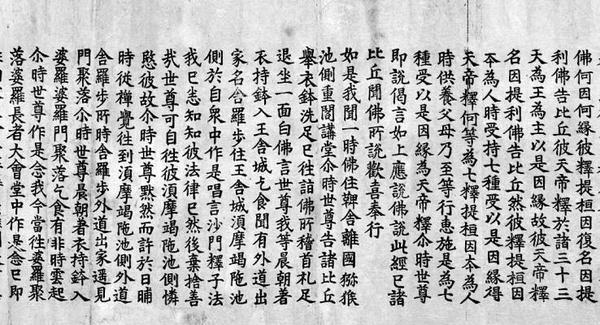 佛何因何緣彼釋提桓因復名因提
利佛告比丘彼天帝釋於諸三十三
天為王為主以是因緣故彼天帝釋
名因提利佛告比丘然彼釋提桓因
本為人時受持七種受以是因緣得
天帝釋何等為七釋提桓因本為人
時供養父母乃至等行惠施是為七
種受以是因緣為天帝釋尒時世尊
即說偈言如上應說佛說此經已諸
比丘聞佛所說歡喜奉行
如是我聞一時佛住鞞舍離國獼猴
池側重閣講堂尒時世尊告諸比丘
舉衣鉢洗足已往詣佛所稽首礼足
退坐一面白佛言世尊我等晨朝著
衣持鉢入王舍城乞食聞有外道出
家名舍羅步住王舍城須摩竭陁池
側於自眾中作是唱言沙門釋子法
我已悉知知彼法律已然後棄捨善
哉世尊可自往彼須摩竭陁池側憐
愍彼故尒時世尊黙然而許於日晡
時從禪覺往到須摩竭陁池側外道
舍羅步所時舍羅步外道出家遙見
門聚落尒時世尊晨朝著衣持鉢入
婆羅婆羅門聚落乞食有非時雲起
尒時世尊作是念我今當往婆羅聚
落婆羅長者大會堂中作是念已即